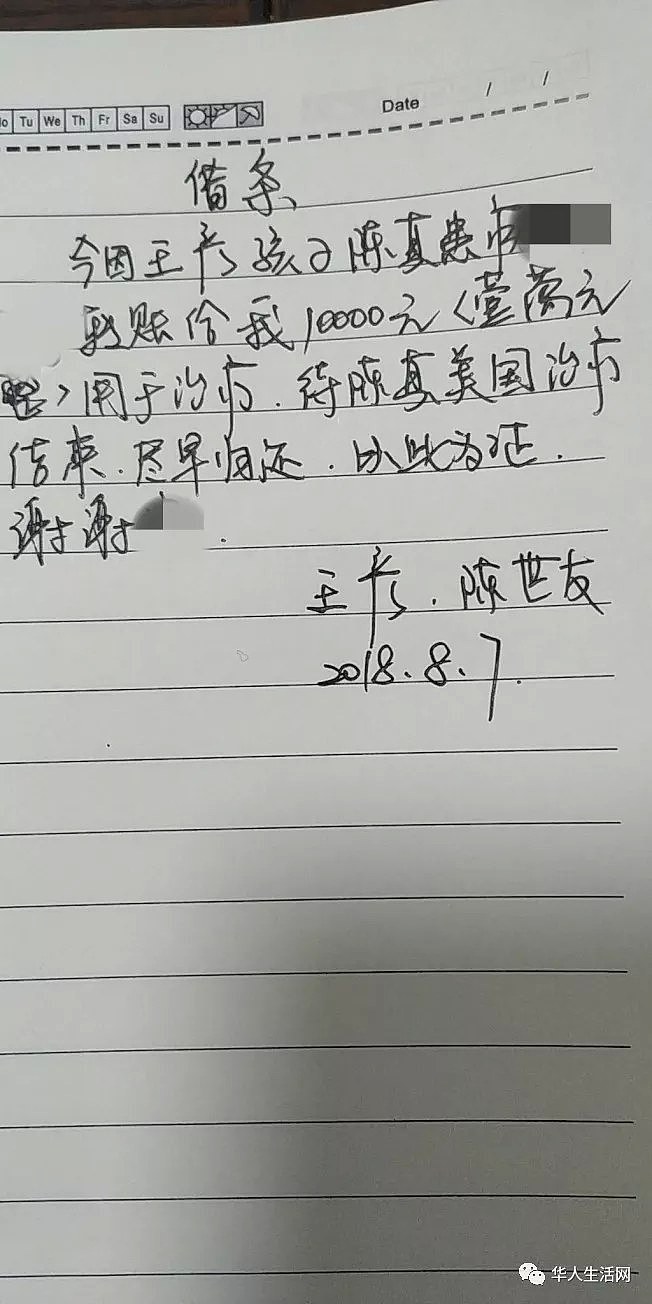 Mo Tu We Th Fr Sa Su
Date / /
借条
今因王彦孩子陈真患病
转账给我10000元(壹萬元
整)用于治病.待陈真美国治病
结束.尽早归还.以此为证.
谢谢.
王彦.陈世友
2018.8.7.
华人生活网